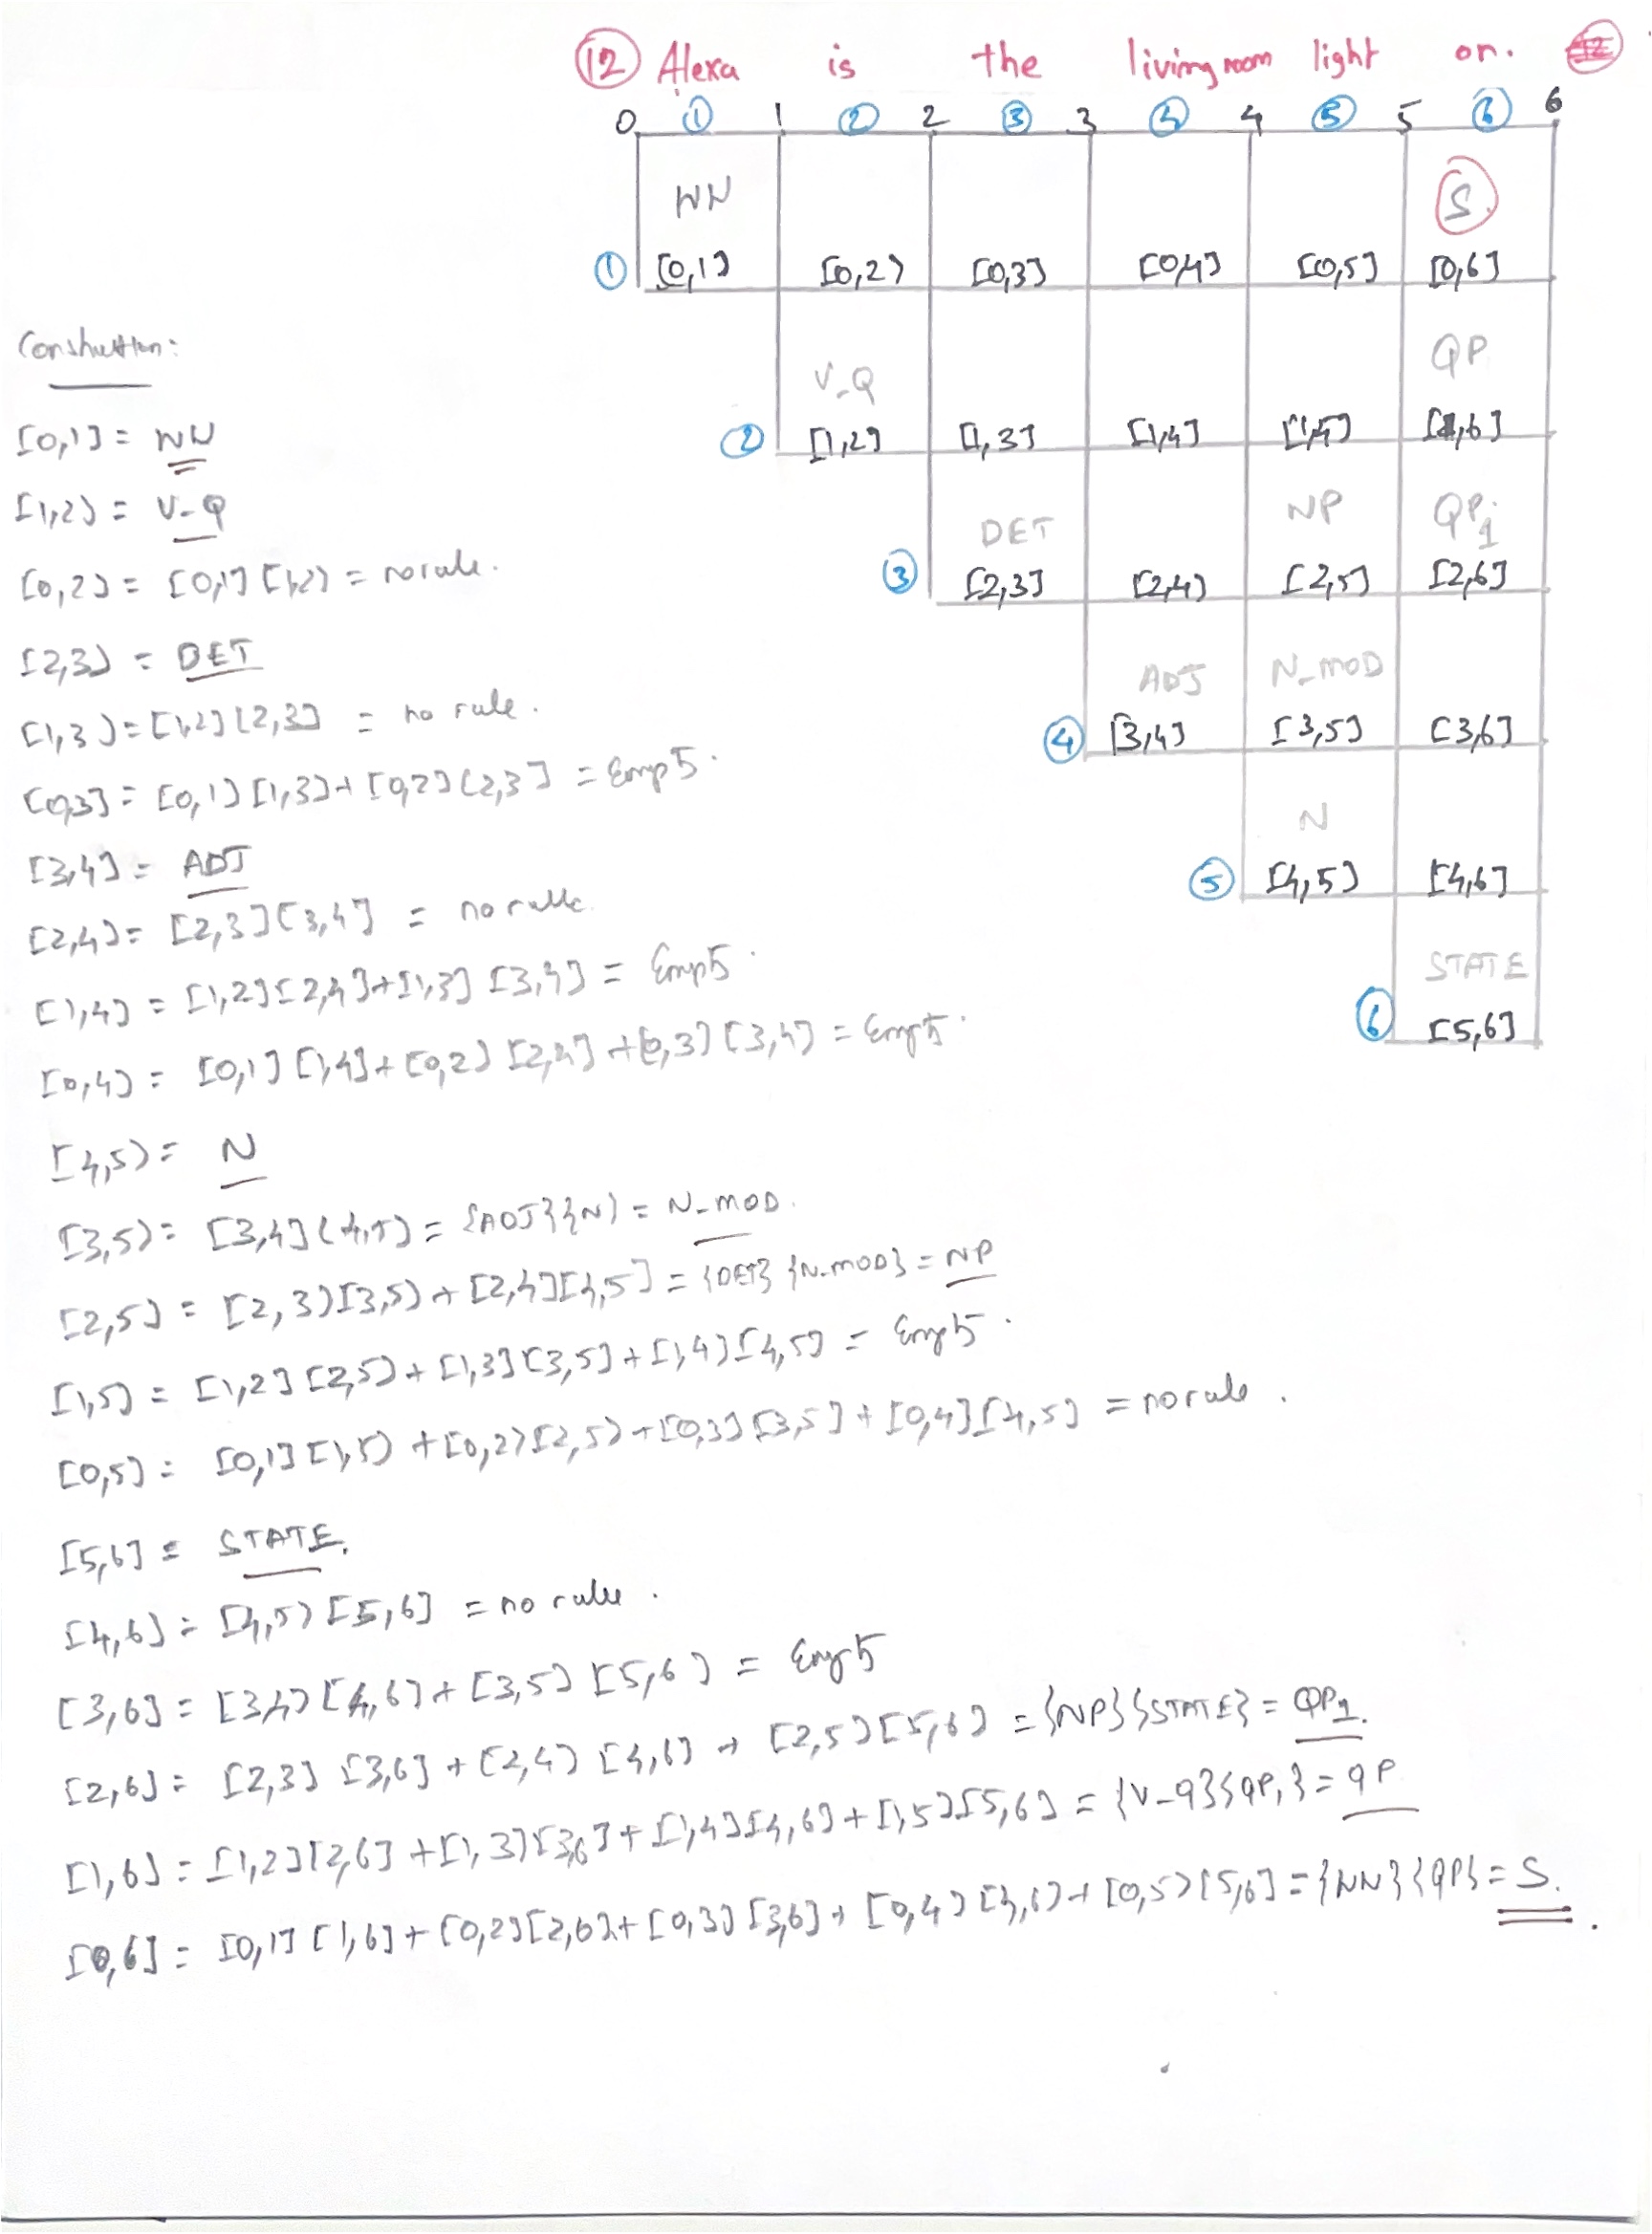 12 Alexa is the livingroom light on.
0 1 1 2 2 3 3 4 4 5 5 6 6
WN S
1 [0,1] [0,2] [0,3] [0,4] [0,5] [0,6]
V_Q QP
2 [1,2] [1,3] [1,4] [1,5] [1,6]
DET NP QP1
3 [2,3] [2,4] [2,5] [2,6]
ADJ N_MOD
4 [3,4] [3,5] [3,6]
N
5 [4,5] [4,6]
STATE
6 [5,6]
Construction:
[0,1] = WN
[1,2] = V-Q
[0,2] = [0,1] [1,2] = no rule.
[2,3] = DET
[1,3] = [1,2] [2,3] = no rule.
[0,3] = [0,1] [1,3] + [0,2] [2,3] = Empty.
[3,4] = ADJ
[2,4] = [2,3] [3,4] = no rule.
[1,4] = [1,2] [2,4] + [1,3] [3,4] = Empty.
[0,4] = [0,1] [1,4] + [0,2] [2,4] + [0,3] [3,4] = Empty.
[4,5] = N
[3,5] = [3,4] [4,5] = {ADJ} {N} = N_MOD.
[2,5] = [2,3] [3,5] + [2,4] [4,5] = {DET} {N_MOD} = NP
[1,5] = [1,2] [2,5] + [1,3] [3,5] + [1,4] [4,5] = Empty.
[0,5] = [0,1] [1,5] + [0,2] [2,5] + [0,3] [3,5] + [0,4] [4,5] = no rule.
[5,6] = STATE.
[4,6] = [4,5] [5,6] = no rule.
[3,6] = [3,4] [4,6] + [3,5] [5,6] = Empty
[2,6] = [2,3] [3,6] + [2,4] [4,6] + [2,5] [5,6] = {NP} {STATE} = QP1.
[1,6] = [1,2] [2,6] + [1,3] [3,6] + [1,4] [4,6] + [1,5] [5,6] = {V-Q} {QP1} = QP
[0,6] = [0,1] [1,6] + [0,2] [2,6] + [0,3] [3,6] + [0,4] [4,6] + [0,5] [5,6] = {WN} {QP} = S.